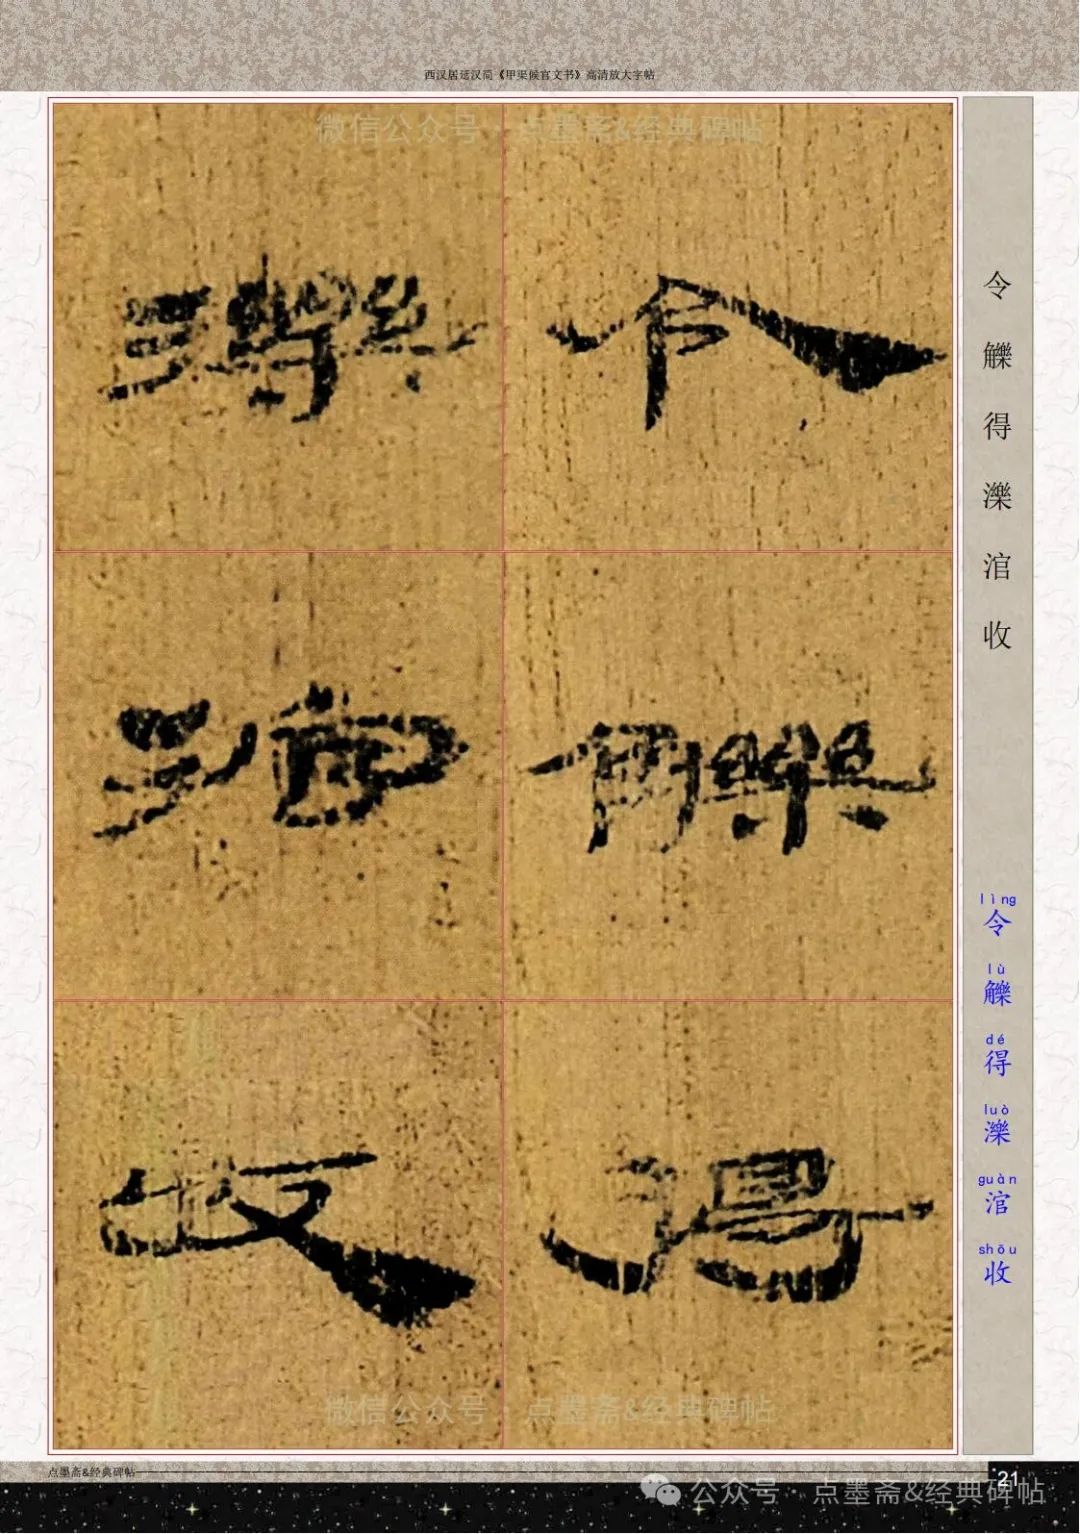 西汉居延汉简《甲渠候官文书》高清放大字帖
微信公众号·点墨斋&经典碑帖
令
觻
得
濼
涫
收
令觻得濼涫收
lìng
令
lù
觻
dé
得
luò
濼
guàn
涫
shōu
收
微信公众号·点墨斋&经典碑帖
点墨斋&经典碑帖
21
公众号·点墨斋&经典碑帖